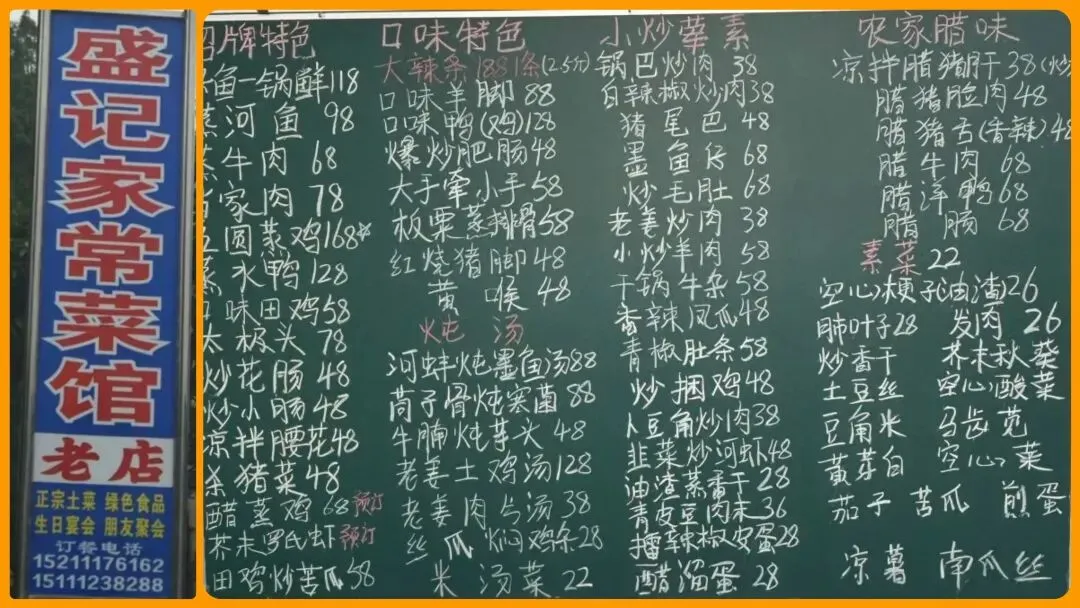 盛记家常菜馆
老店
正宗土菜 绿色食品
生日宴会 朋友聚会
订餐电话
15211176162
15111238288
招牌特色
鱼一锅鲜118
蒸河鱼 98
蒸牛肉 68
家肉 78
圆蒸鸡168
蒸水鸭128
口味田鸡58
太极头 78
炒花肠 48
炒小肠 48
凉拌腰花48
杀猪菜 48
醋蒸鸡 68 预订
芥末罗氏虾 预订
田鸡炒苦瓜 58
口味特色
大辣条188 1条(2.5分)
口味羊脚 88
口味鸭(鸡)128
爆炒肥肠48
大手牵小手58
板栗蒸排骨58
红烧猪脚48
黄喉 48
炖汤
河蚌炖墨鱼汤88
筒子骨炖寒菌 88
牛腩炖芋头 48
老姜土鸡汤128
老姜肉片汤 38
丝瓜焖鸡杂28
米汤菜 22
小炒荤素
锅巴炒肉 38
白辣椒炒肉38
猪尾巴 48
墨鱼仔 68
炒毛肚 68
老姜炒肉 38
小炒羊肉 58
干锅牛杂58
香辣凤爪48
青椒肚条58
炒捆鸡48
豆角炒肉38
韭菜炒河虾48
油渣蒸香干28
青皮豆肉末36
擂辣椒皮蛋28
醋溜蛋 28
农家腊味
凉拌腊猪肝38(炒)
腊猪脸肉48
腊猪舌(香辣)48
腊牛肉 68
腊洋鸭68
腊肠 68
素菜22
空心梗子油渣26
肺叶子28 发肉 26
炒香干 芥末秋葵
土豆丝 空心酸菜
豆角米 马齿苋
黄芽白 空心菜
茄子 苦瓜 煎蛋
凉薯 南瓜丝